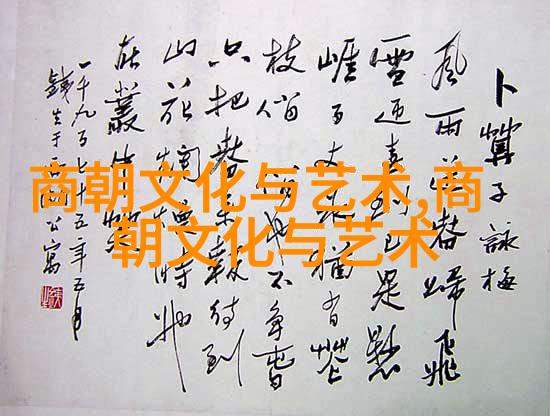 商朝文化与艺术,商
朝文化与艺术
卜算子 詠梅
風雨送春歸飛
雪迎春到已是懸
崖百丈冰猶有花
枝俏俏也不争春
只把春来報待到
山花爛漫時她
在叢中笑
一千九百七十五年五月
公寓